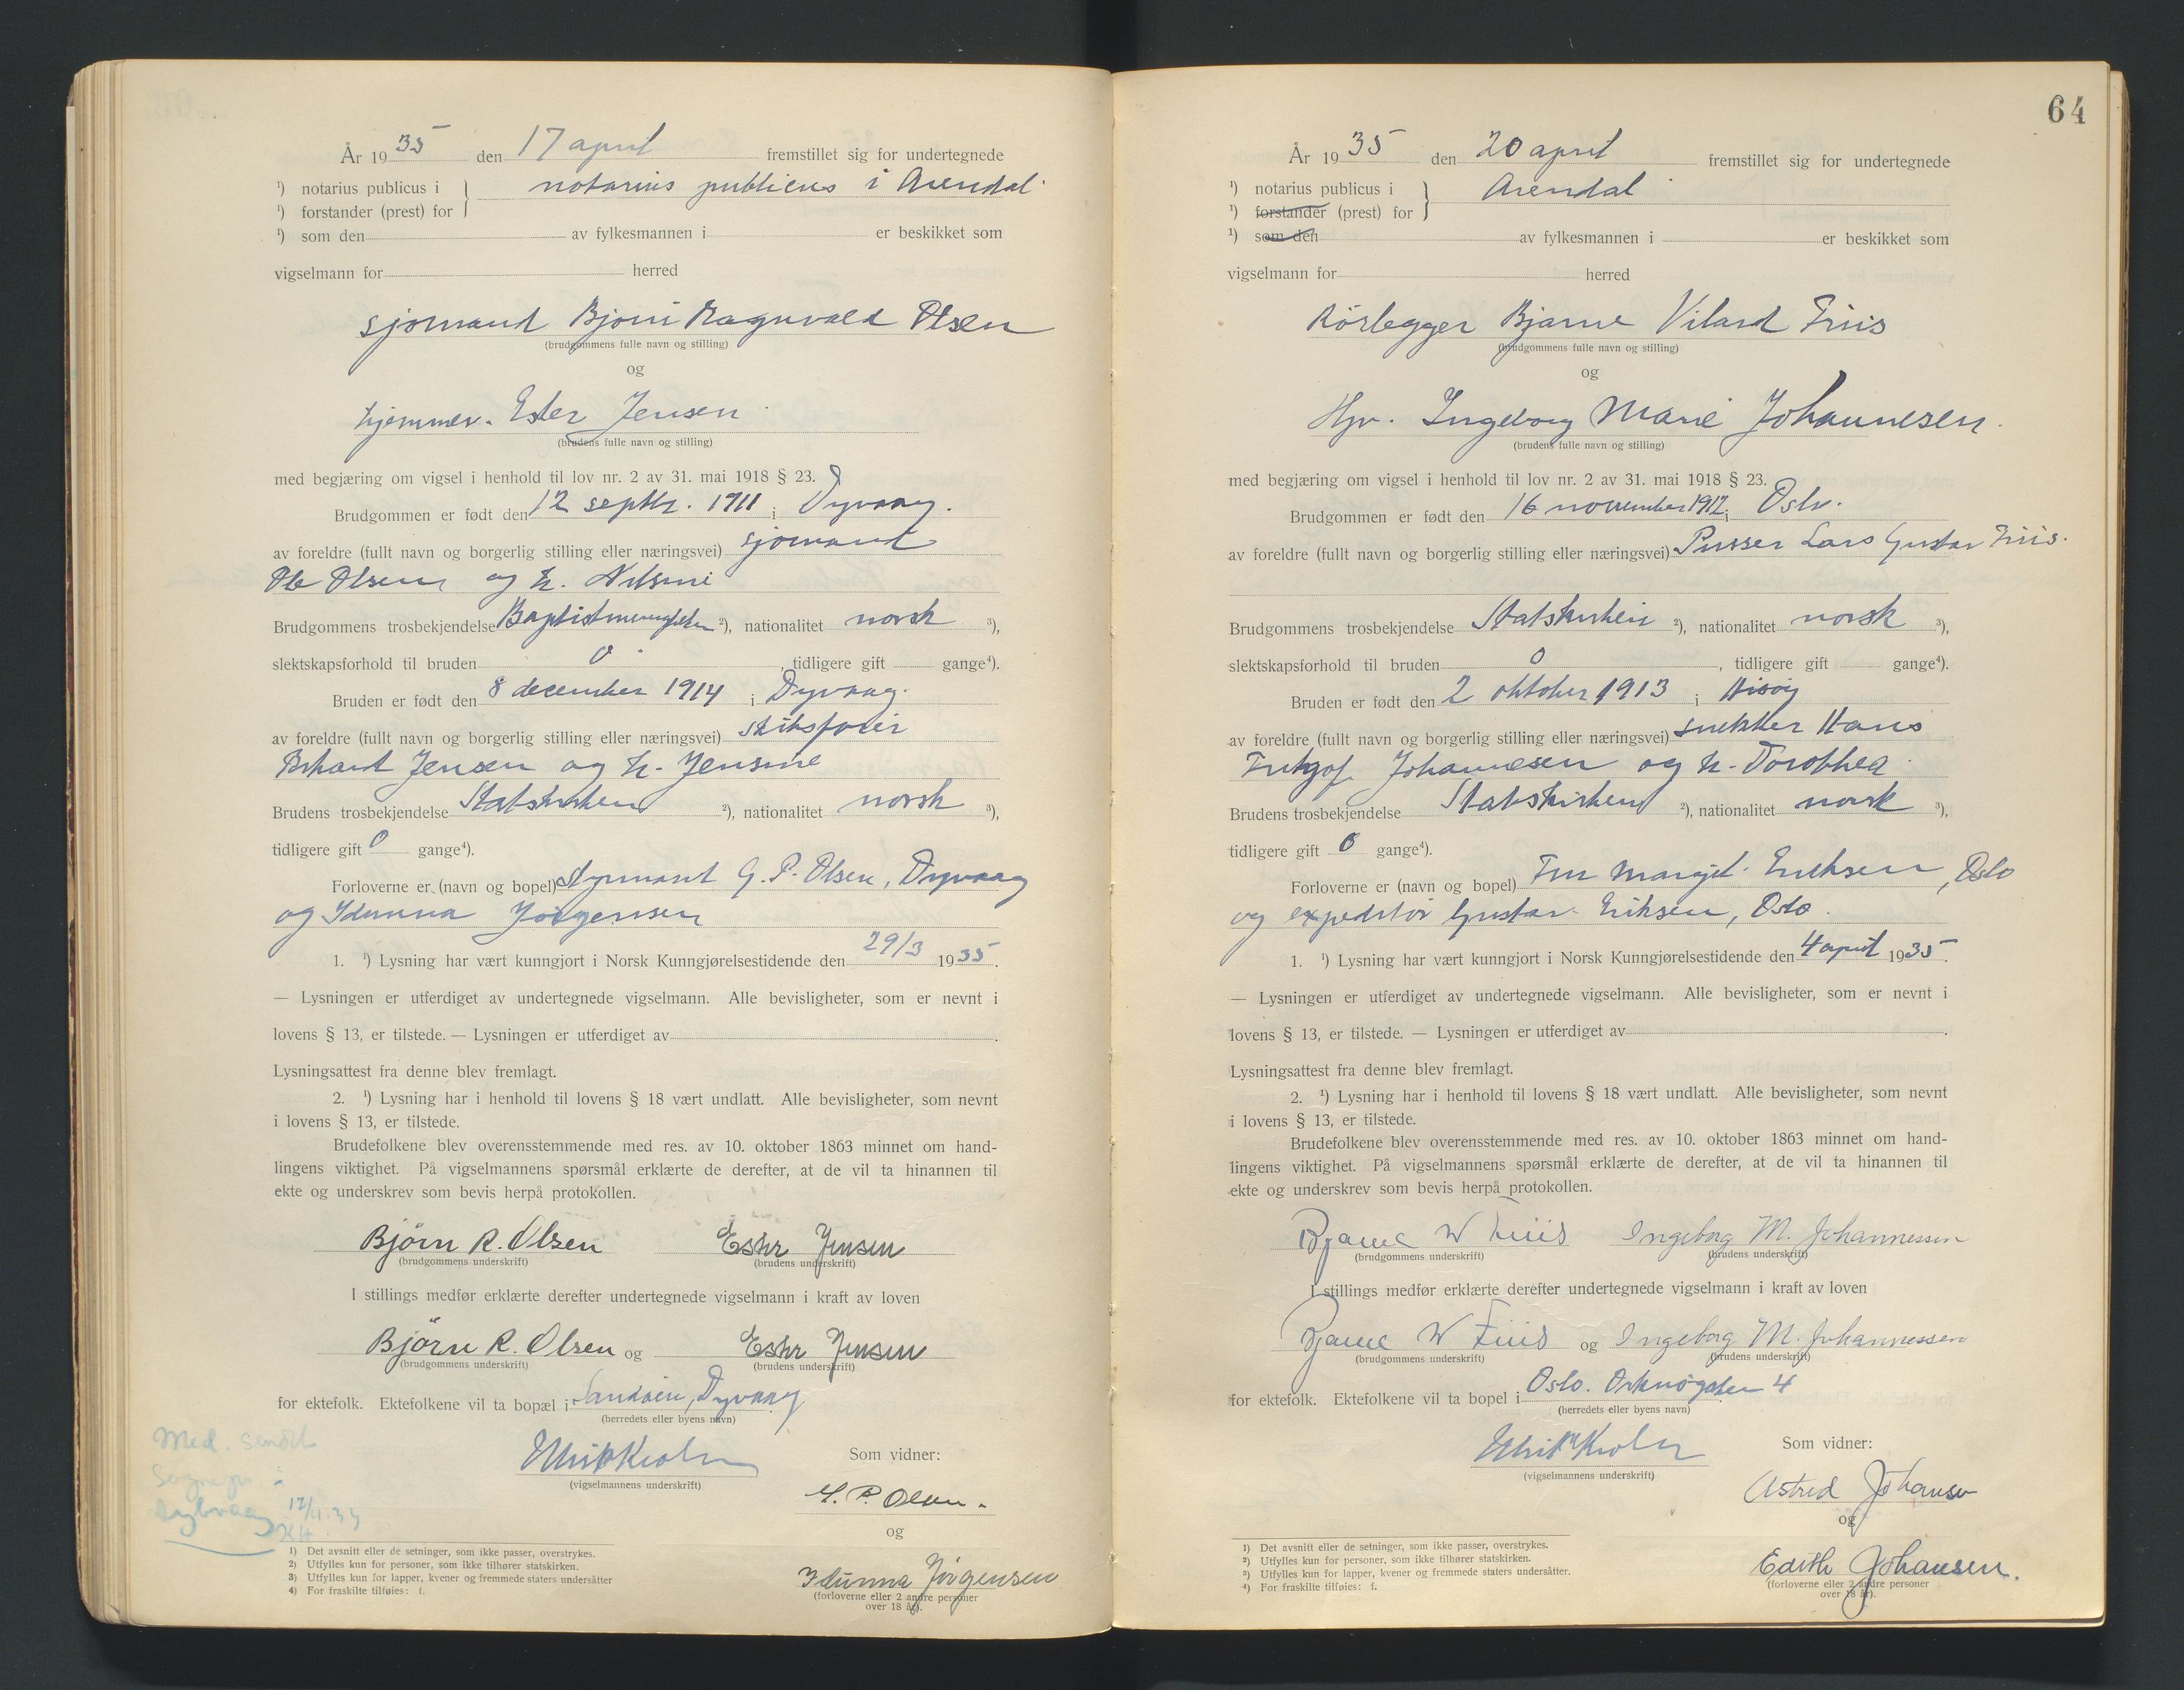 År 1935 den 17 april fremstillet sig for undertegnede
¹) notarius publicus i notarius publicus i Arendal
¹) forstander (prest) for
¹) som den av fylkesmannen i er beskikket som
vigselmann for herred
sjømand Bjørn Ragnvald Olsen
(brudgommens fulle navn og stilling)
og
hjemmev. Ester Jensen
(brudens fulle navn og stilling)
med begjæring om vigsel i henhold til lov nr. 2 av 31. mai 1918 § 23.
Brudgommen er født den 12 septbr. 1911 i Dyvaag.
av foreldre (fullt navn og borgerlig stilling eller næringsvei) sjømand
Ole Olsen og h. Nilsine
Brudgommens trosbekjendelse Baptistmenigheten ²), nationalitet norsk ³),
slektskapsforhold til bruden 0 , tidligere gift gange⁴).
Bruden er født den 8 december 1914 i Dyvaag.
av foreldre (fullt navn og borgerlig stilling eller næringsvei) skibsfører
Jensen og h. Jensine
Brudens trosbekjendelse Statskirken ²), nationalitet norsk ³),
tidligere gift 0 gange⁴).
Forloverne er (navn og bopel) styrmand G. P. Olsen, Dyvaag
og Idunna Jørgensen
1. ¹) Lysning har vært kunngjort i Norsk Kunngjørelsestidende den 29/3 1935.
— Lysningen er utferdiget av undertegnede vigselmann. Alle bevisligheter, som er nevnt i
lovens § 13, er tilstede. — Lysningen er utferdiget av .
Lysningsattest fra denne blev fremlagt.
2. ¹) Lysning har i henhold til lovens § 18 vært undlatt. Alle bevisligheter, som nevnt
i lovens § 13, er tilstede.
Brudefolkene blev overensstemmende med res. av 10. oktober 1863 minnet om hand-
lingens viktighet. På vigselmannens spørsmål erklærte de derefter, at de vil ta hinannen til
ekte og underskrev som bevis herpå protokollen.
Bjørn R. Olsen Ester Jensen
(brudgommens underskrift) (brudens underskrift)
I stillings medfør erklærte derefter undertegnede vigselmann i kraft av loven
Bjørn R. Olsen og Ester Jensen
(brudgommens underskrift) (brudens underskrift)
for ektefolk. Ektefolkene vil ta bopæl i Sandøen, Dyvaag
(herredets eller byens navn)
Med. sendt
Ulrik Krohn Som vidner:
(vigselmannens underskrift)
G. P. Olsen.
og
Idunna Jørgensen
(forloverne eller 2 andre personer
over 18 år).
¹) Det avsnitt eller de setninger, som ikke passer, overstrykes.
²) Utfylles kun for personer, som ikke tilhører statskirken.
³) Utfylles kun for lapper, kvener og fremmede staters undersåtter
⁴) For fraskilte tilføies: f.
64
År 1935 den 20 april fremstillet sig for undertegnede
¹) notarius publicus i Arendal
¹) forstander (prest) for
¹) som den av fylkesmannen i er beskikket som
vigselmann for herred
Rörlegger Bjarne Vilard Friis
(brudgommens fulle navn og stilling)
og
Hjv. Ingeborg Marie Johannesen
(brudens fulle navn og stilling)
med begjæring om vigsel i henhold til lov nr. 2 av 31. mai 1918 § 23.
Brudgommen er født den 16 november 1912 i Oslo.
av foreldre (fullt navn og borgerlig stilling eller næringsvei) Pusser Lars Gustav Friis.
Brudgommens trosbekjendelse Statskirken ²), nationalitet norsk ³),
slektskapsforhold til bruden 0 , tidligere gift gange⁴).
Bruden er født den 2 oktober 1913 i Hisøy
av foreldre (fullt navn og borgerlig stilling eller næringsvei) snekker Hans
Fritjof Johannesen og h. Dorothea
Brudens trosbekjendelse Statskirken ²), nationalitet norsk ³),
tidligere gift 0 gange⁴).
Forloverne er (navn og bopel) Fru Margit Eriksen, Oslo
og expeditør Gustav Eriksen, Oslo
1. ¹) Lysning har vært kunngjort i Norsk Kunngjørelsestidende den 4 april 1935.
— Lysningen er utferdiget av undertegnede vigselmann. Alle bevisligheter, som er nevnt i
lovens § 13, er tilstede. — Lysningen er utferdiget av .
Lysningsattest fra denne blev fremlagt.
2. ¹) Lysning har i henhold til lovens § 18 vært undlatt. Alle bevisligheter, som nevnt
i lovens § 13, er tilstede.
Brudefolkene blev overensstemmende med res. av 10. oktober 1863 minnet om hand-
lingens viktighet. På vigselmannens spørsmål erklærte de derefter, at de vil ta hinannen til
ekte og underskrev som bevis herpå protokollen.
Bjarne W Friis Ingeborg M. Johannessen
(brudgommens underskrift) (brudens underskrift)
I stillings medfør erklærte derefter undertegnede vigselmann i kraft av loven
Bjarne W Friis og Ingeborg M. Johannessen
(brudgommens underskrift) (brudens underskrift)
for ektefolk. Ektefolkene vil ta bopel i Oslo. Orknøgaten 4
(herredets eller byens navn)
Ulrik Krohn Som vidner:
(vigselmannens underskrift)
Astrid Johansen
og
Edith Johansen.
(forloverne eller 2 andre personer
over 18 år).
¹) Det avsnitt eller de setninger, som ikke passer, overstrykes.
²) Utfylles kun for personer, som ikke tilhører statskirken.
³) Utfylles kun for lapper, kvener og fremmede staters undersåtter.
⁴) For fraskilte tilføies: f.